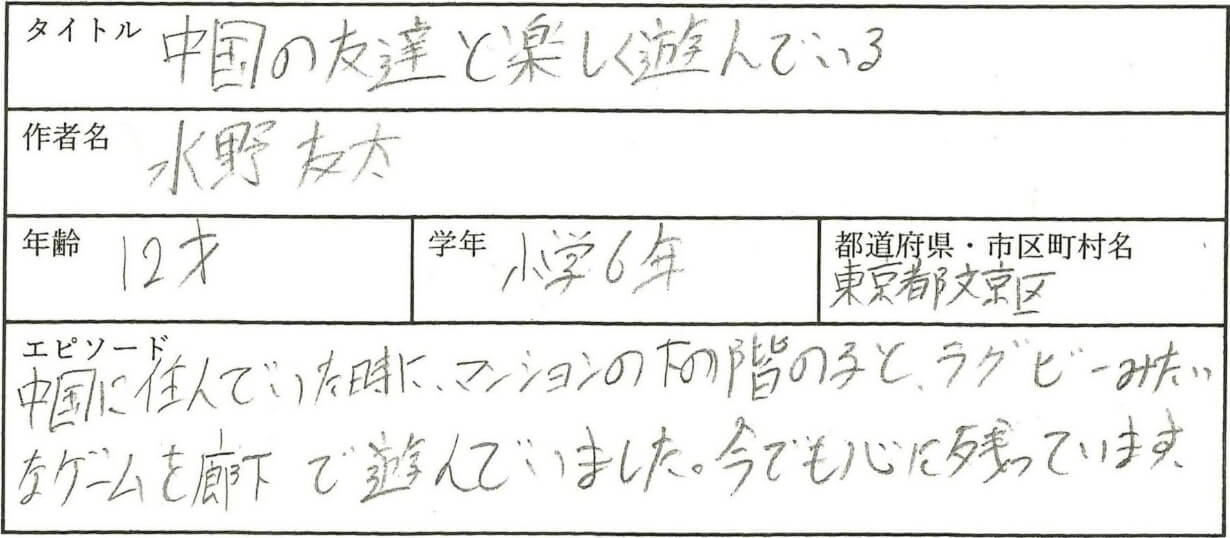 タイトル 中国の友達と楽しく遊んでいる
作者名 水野友太
年齢 12才 学年 小学6年 都道府県・市区町村名 東京都文京区
エピソード
中国に住んでいた時に、マンションの下の階の子と、ラグビーみたい
なゲームを廊下で遊んでいました。今でも心に残っています。